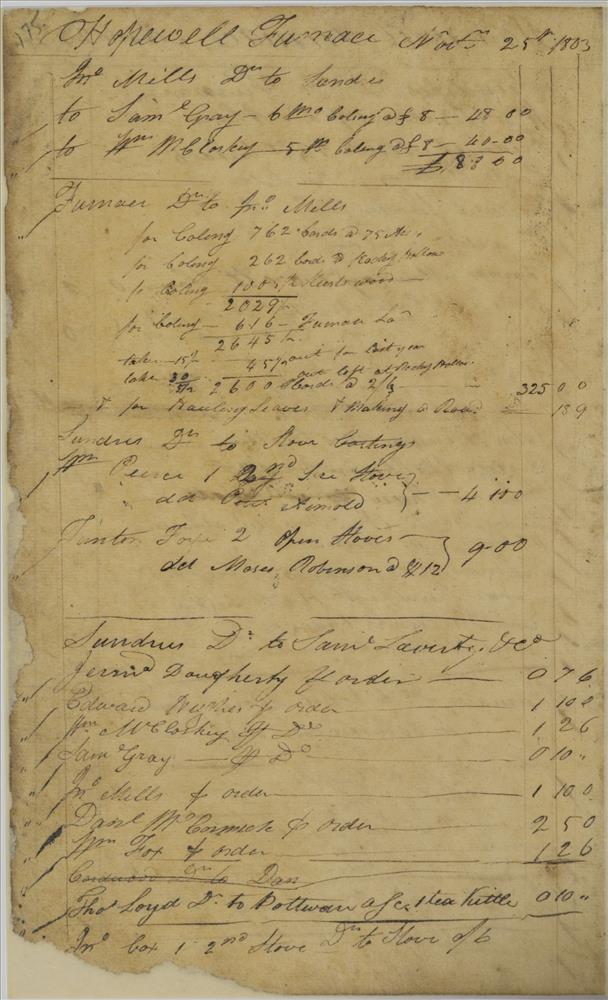 175
Hopewell Furnace Novr 25th 1803
Jno Mills Dr to Sundries
to Saml Gray - 6 Mo Coling @ £8 - 48 00
to Wm McCloskey 5 Mo Coling @ £8 - 40-00
£ 88 0 0
Furnace Dr to Jno Mills
for Coling 762 Cords @ 75
for Coling 262 Cords @ Rocky Hollow
for Coling 1005 wood
2029
for Coling - 616 - Furnace
2645
take 15 out for last year
take 30 45 out left at Rocky Hollow
2600 Cords @ 2/6 325 0 0
& for Hauling Leaves & Making a Road 18 9
Sundries Drs to Stove Castings
Wm Peirce 1 2nd Size Stove
dd Arnold - - 4 10 0
Fox 2 Open Stoves
dd Moses Robinson @ $12 9-00
Sundries Dr to Saml Laverty &Co
Jerm'd Daugherty p order 0 7 6
Edward Hughes p order 1 10 0
Wm McCloskey p Do 1 2 6
Saml Gray p Do 0 10 "
Jno Mills p order 1 10 0
Danl McCormick p order 2 5 0
Wm Fox p order 1 2 6
Cordwood Dr to Dan
Thos Loyd Dr to Pottware a Sc Tea Kettle 0 10 "
Jno Cox 1 2nd Stove Dr to Stove of 6